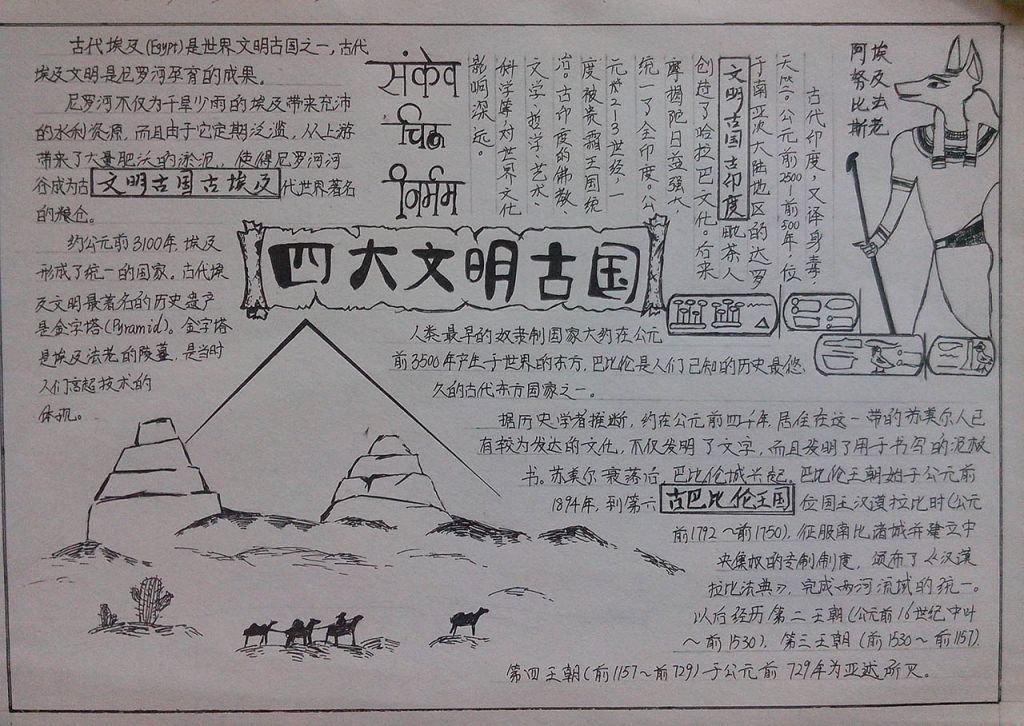 古代埃及(Egypt)是世界文明古国之一,古代
埃及文明是尼罗河孕育的成果。
尼罗河不仅为干旱少雨的埃及带来充沛
的水利资源,而且由于它定期泛滥,从上游
带来了大量肥沃的淤泥,使得尼罗河河
谷成为古代世界著名
文明古国古埃及
的粮仓。
约公元前3100年,埃及
形成了统一的国家。古代埃
及文明最著名的历史遗产
是金字塔(Pyramid)。金字塔
是埃及法老的陵墓,是当时
人们高超技术的
体现。
संकेव
चिह्न
निर्मम
四大文明古国
古代印度,又译身毒,
天竺。公元前2500—前300年,位
于南亚次大陆地区的达罗
文明古国古印度
毗荼人
创造了哈拉巴文化。后来
摩揭陀日益强大,
统一了全印度。公
元前2-3世纪,一
度被贵霜王国统
治。古印度的佛教、
文学、哲学、艺术、
科学等对世界文化
影响深远。
埃及法老
阿努比斯
人类最早的奴隶制国家大约在公元
前3500年产生于世界的东方,巴比伦是人们已知的历史最悠
久的古代东方国家之一。
据历史学者推断,约在公元前四千年,居住在这一带的苏美尔人已
有较为发达的文化,不仅发明了文字,而且发明了用于书写的泥板
书。苏美尔衰落后,巴比伦城兴起。巴比伦王朝始于公元前
1894年,到第六
古巴比伦王国
位国王汉谟拉比时(公元
前1792～前1750),征服南比诸城并建立中
央集权的专制制度,颁布了《汉谟
拉比法典》,完成两河流域的统一。
以后经历第二王朝(公元前16世纪中叶
～前1530),第三王朝(前1530～前1157)
第四王朝(前1157～前729)于公元前729年为亚述所灭。